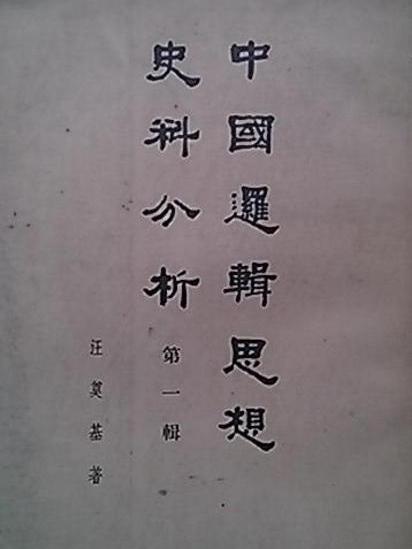 中國邏輯思想
史料分析
第一輯
汪奠基著